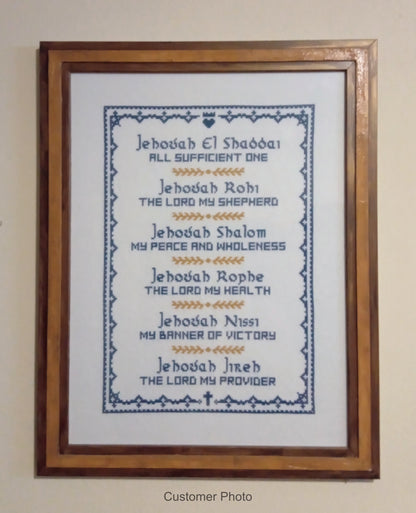 Jehovah El Shaddai
ALL SUFFICIENT ONE
Jehovah Rohi
THE LORD MY SHEPHERD
Jehovah Shalom
MY PEACE AND WHOLENESS
Jehovah Rophe
THE LORD MY HEALTH
Jehovah Nissi
MY BANNER OF VICTORY
Jehovah Jireh
THE LORD MY PROVIDER
Customer Photo